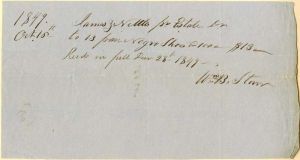 1849. James J. Nettles for Estate Dr
Oct. 15th to 13 pair Negro Shoes @ 100 $13—
Recd in full Jan 28th 1849—
Wm B. Starr